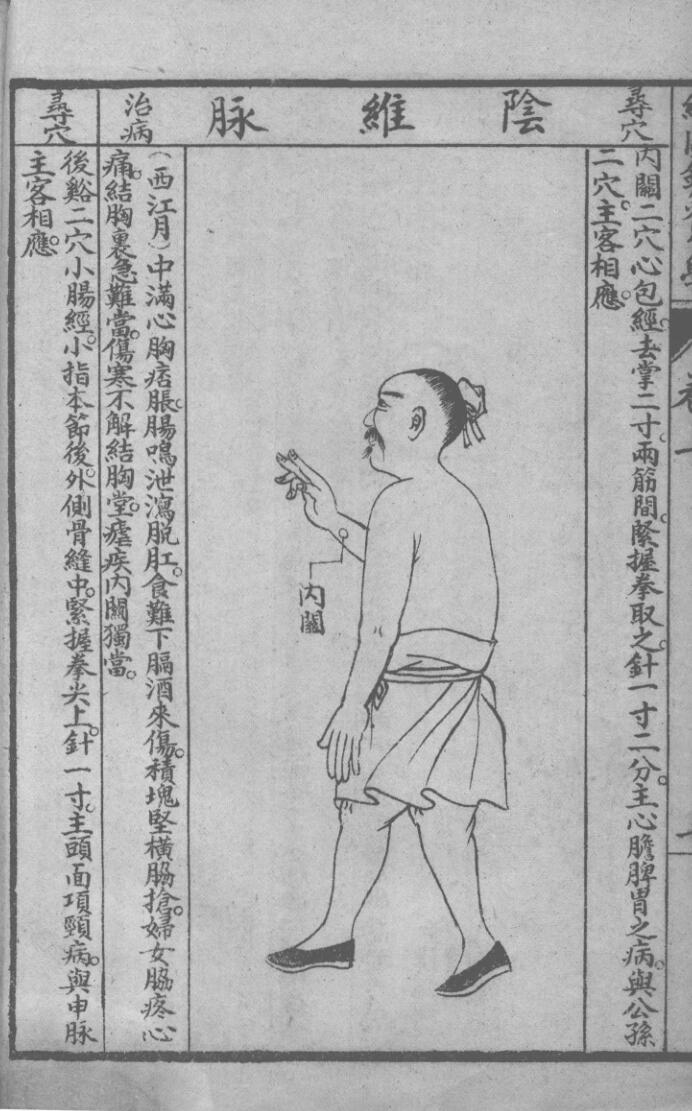 尋穴
內關二穴心包經。去掌二寸。兩筋間。緊握拳取之。針一寸二分。主心膽脾胃之病。與公孫
二穴。主客相應。
陰維脉
內關
治病
(西江月)中滿心胸痞脹。腸鳴泄瀉脫肛。食難下膈酒來傷。積塊堅橫脇搶。婦女脇疼心
痛。結胸裏急難當。傷寒不解結胸堂。瘧疾內關獨當。
尋穴
後谿二穴小腸經。小指本節後。外側骨縫中。緊握拳尖上。針一寸。主頭面項頸病。與申脉
主客相應。